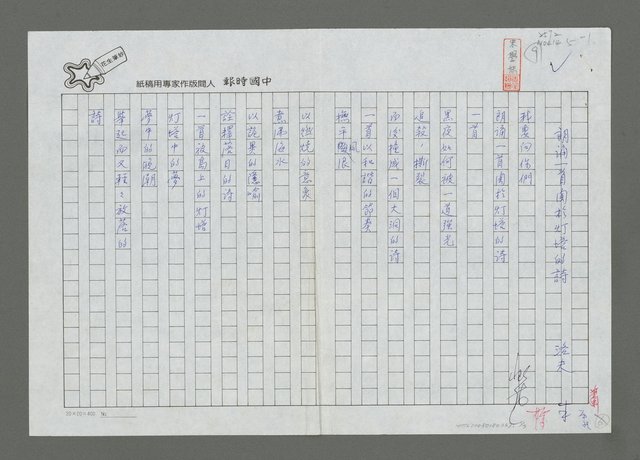 中國時報 人間版作家專用稿紙
朗誦一首關於灯塔的詩
洛夫
我要向你們
朗誦一首關於灯塔的詩
一首
黑夜如何被一道強光
追殺，撕裂
而後擴成一個大洞的詩
一首以和諧的節奏
撫平風浪
以燃燒的意象
煮沸海水
以詭異的隱喻
詮釋落日的詩
一首孤島上的灯塔
灯塔中的夢
夢中的晚潮
舉起而又輕輕放落的
詩
20×20=400 No.